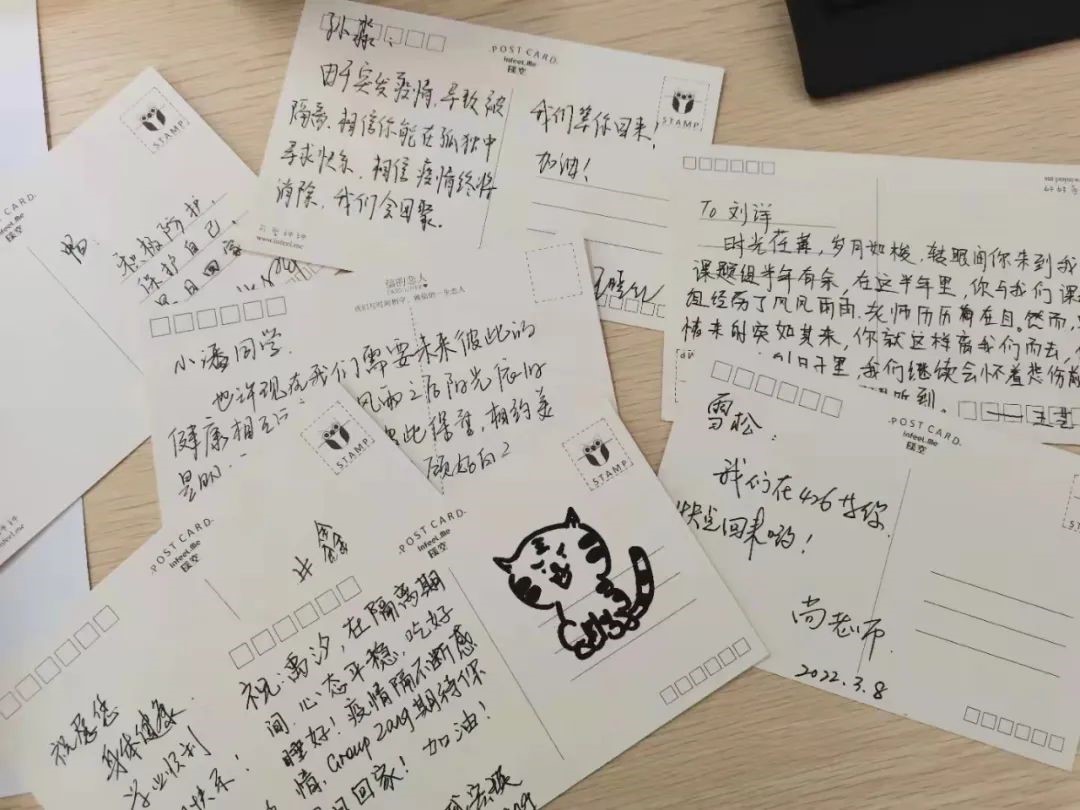 孙淼：
由于突发疫情，导致被
隔离，相信你能在孤独中
寻求快乐，相信疫情终将
消除，我们会回聚。
www.infeel.me
POST CARD.
infeel.me
STAMP
我们等你回来！
加油！
STAMP
POST CARD.
infeel.me
积极防护，
保护自己，
infeel.me
To 刘洋
时光荏苒，岁月如梭，转眼间你来到我
课题组半年有余，在这半年里，你与我们课
组经历了风风雨雨，老师历历再在目。然而，
情来的突如其来，你就这样离我们而去，
日子里，我们继续会怀着悲伤
听到。
小潘同学，
也许现在我们需要未来彼此的
健康相互
风雨之后阳光
彼此保重，相约美
POST CARD.
infeel.me
雪松：
我们在426等你
快点回来哟！
尚老师
2022.3.8
STAMP
POST CARD.
infeel.me
祝愿您
身体健康
学业顺利
快乐！
STAMP
POST CARD.
infeel.me
祝：禹汐，在隔离期
间，心态平稳，吃好
睡好！疫情隔不断感
情，Group 2019期待你
回家！加油！
STAMP